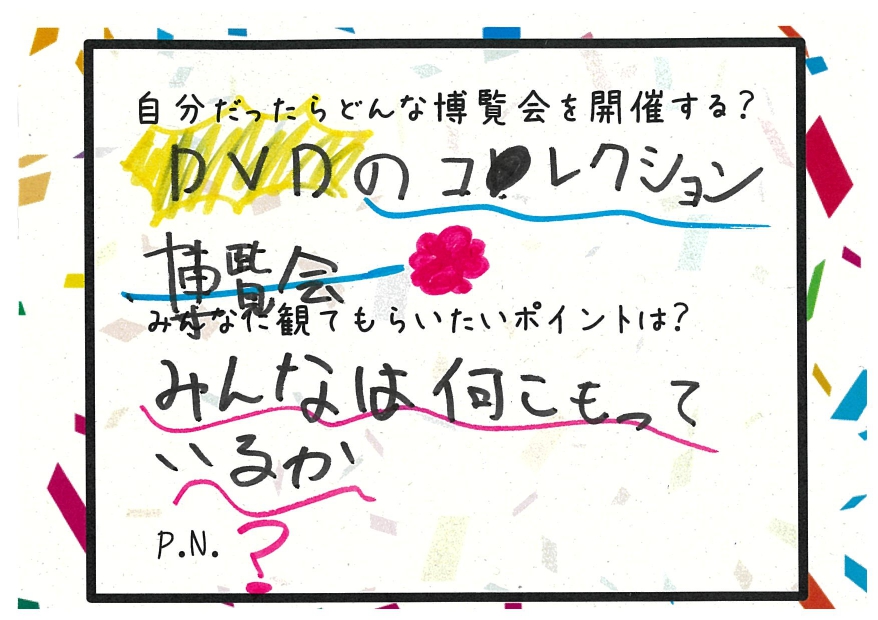 自分だったらどんな博覧会を開催する?
DVDのコレクション
博覧会
みんなに観てもらいたいポイントは?
みんなは何こもって
いるか
P.N. ?